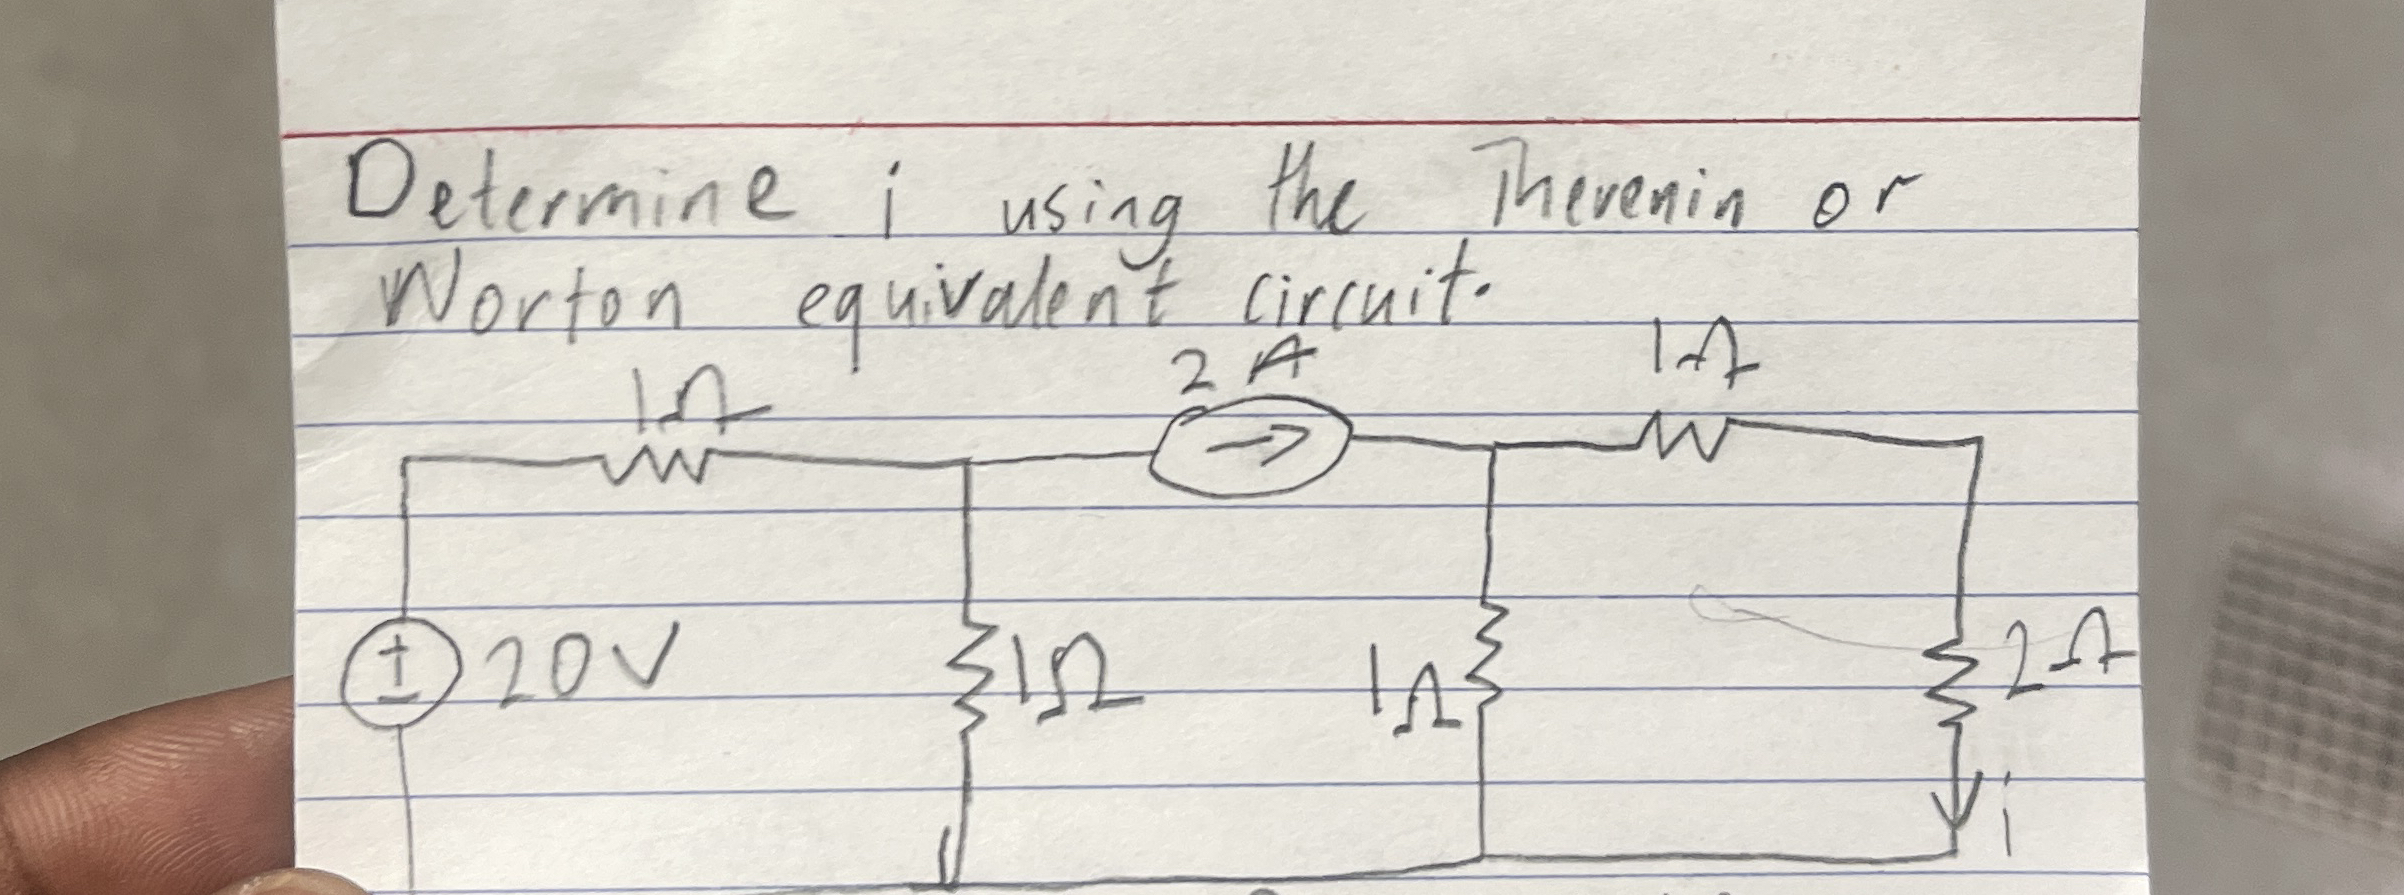 Determine i using the Thevenin or
Norton equivalent circuit.
2 A
1Ω
1Ω
20V
1Ω
1Ω
2Ω
i